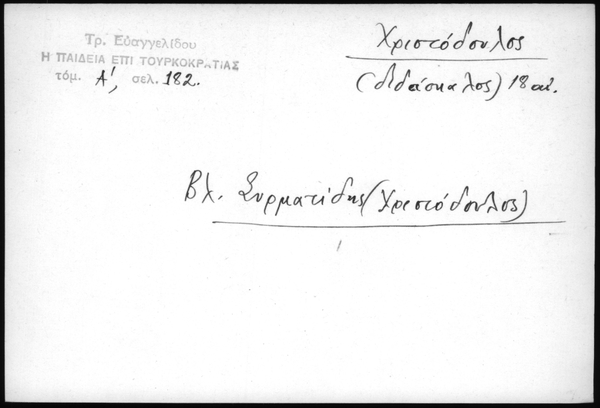 Τρ. Εὐαγγελίδου
Η ΠΑΙΔΕΙΑ ΕΠΙ ΤΟΥΡΚΟΚΡΑΤΙΑΣ
τόμ. Α', σελ. 182.
Χριστόδουλος
(διδάσκαλος) 18 αἰ.
Βλ. Συρματίδης (Χριστόδουλος)